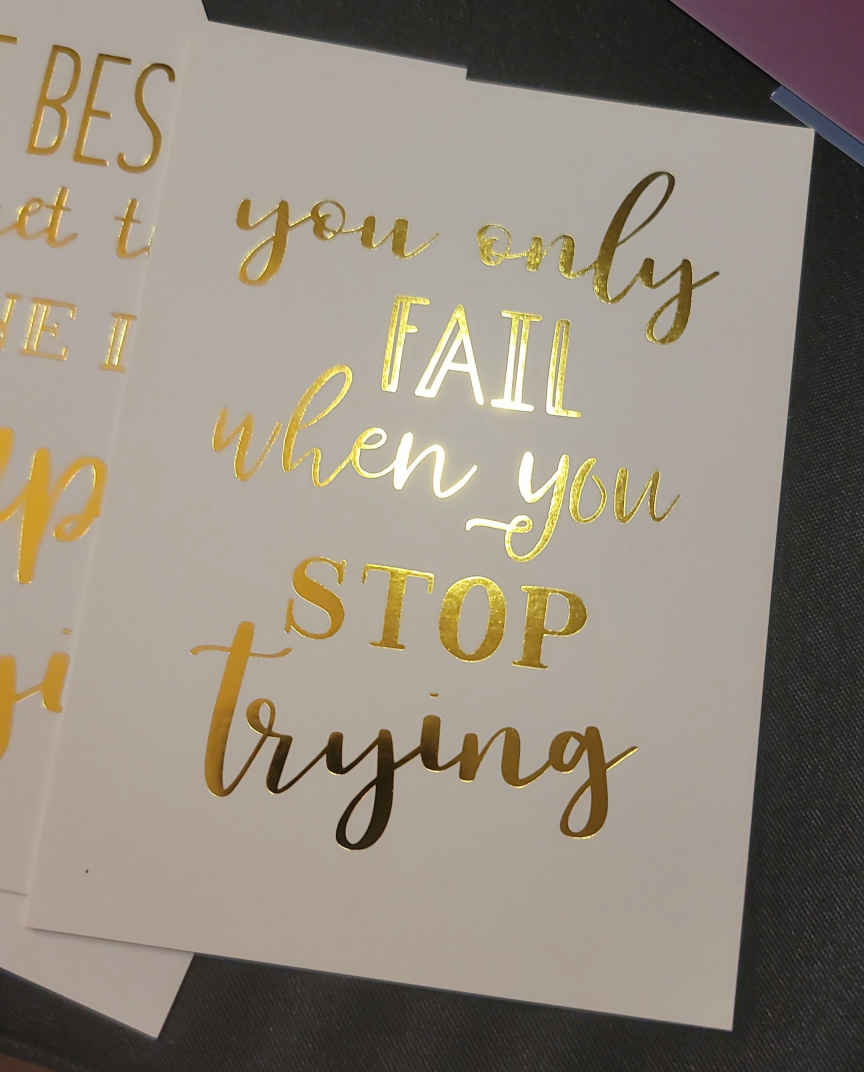 BES
you only
FAIL
when you
STOP
trying